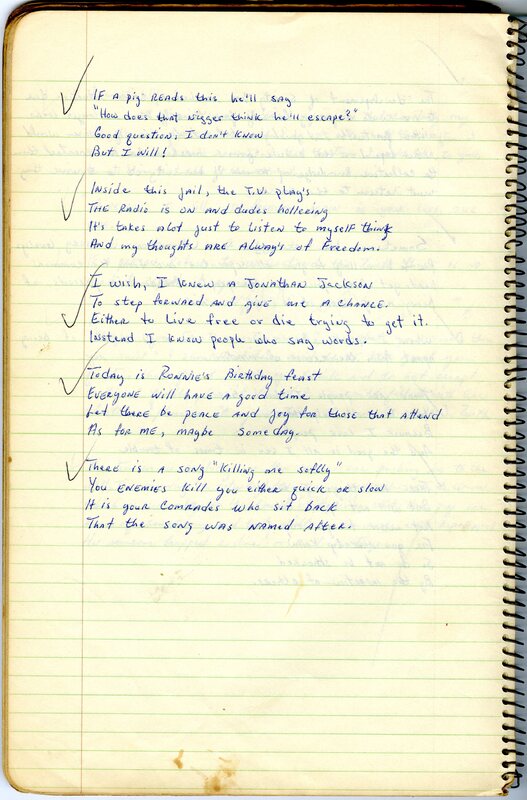 IF A pig READS this he'll SAY
"How does that nigger think he'll escape?"
Good question; I don't know
But I will!
Inside this jail, the T.V. play's
THE RADIO is ON and dudes hollering
It's takes alot just to listen to myself think
And my thoughts ARE Alway's of Freedom.
I wish, I knew a JONATHAN JACKSON
To step forward AND give me A CHANCE.
Either to Live free or die trying to get it.
Instead I know people who say words.
Today is RONNIE'S Birthday feast
EVERYONE will HAVE A good time
Let there be peace AND joy for those that Attend
As for ME, maybe Someday.
There is A SONG "Killing me softly"
You ENEMIES Kill you either quick or slow
It is your COMRADES who sit back
That the SONG WAS NAMED After.